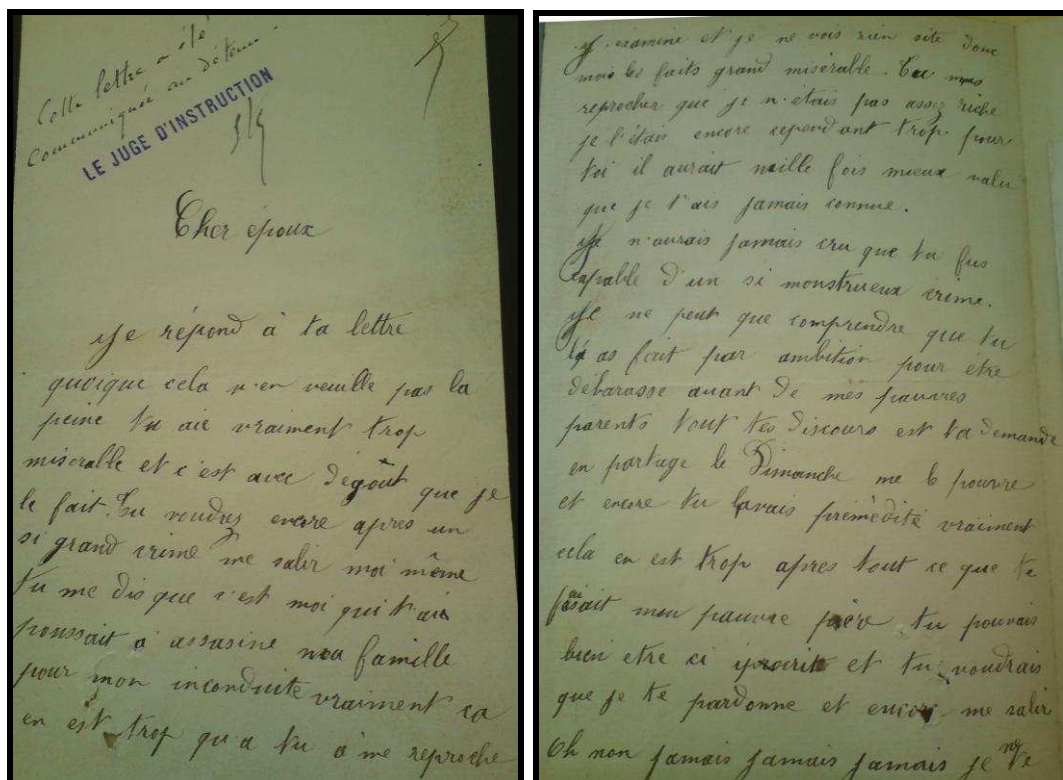 Cette lettre a été
communiquée au détenu.
LE JUGE D'INSTRUCTION
Cher époux
Je répond à ta lettre
quoique cela n'en veuille pas la
peine tu aie vraiment trop
miserable et c'est avec dégôut que je
le fait. Tu voudrez encore apres un
si grand crime me salir moi même
tu me dis que c'est moi qui t'ai
poussait a assasine ma famille
pour mon inconduite vraiment ca
en est trop qu a tu a me reproche
J'examine et je ne vois rien site donc
mois les faits grand misérable. Tu
reprocher que je n'étais pas assez riche
je l'étais encore cependant trop pour
toi il aurait mille fois mieux valu
que je t'ais jamais connue.
Je n'aurais jamais cru que tu fus
capable d'un si monstrueux crime.
Je ne peut que comprendre que tu
as fait par ambition pour être
débarasse avant de mes pauvres
parents tout tes discours est ta demande
en partage le Dimanche me le pouvre
et encore tu lavais prémédité vraiment
cela en est trop apres tout ce que te
faisait mon pauvre père tu pouvais
bien etre ci et tu voudrais
que je te pardonne et encore me salir
Oh non jamais jamais jamais je ne te